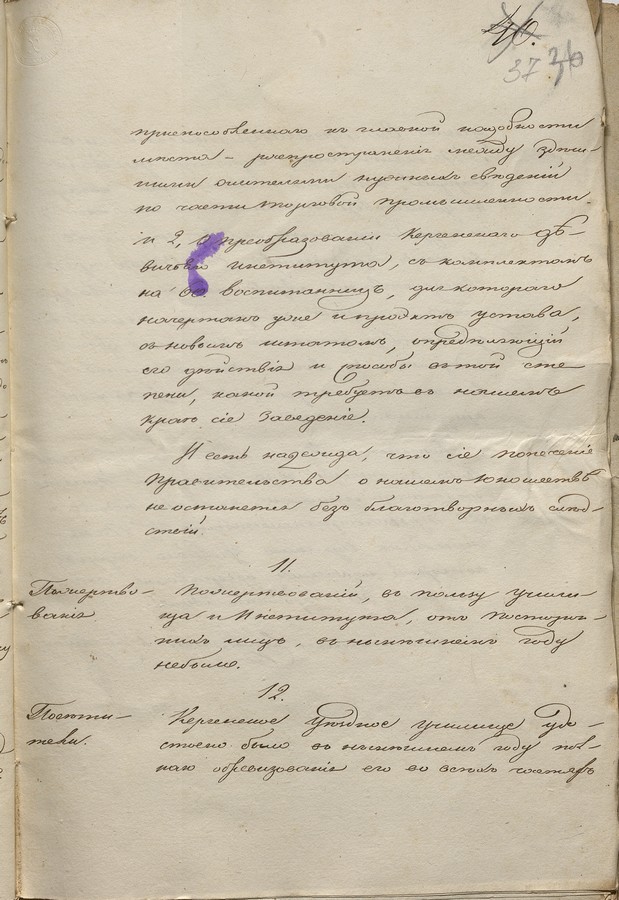 40.
37 36
приспособленнаго къ главной надобности
мѣста – распространенія между здѣш-
ними жителями нужныхъ свѣденій
по части торговой промышленности.
и 2, о преобразованіи Керченскаго дѣ-
вичьяго института, съ комплектомъ
на воспитанницъ, для котораго
начертанъ уже и проэктъ устава,
съ новымъ штатомъ, опредѣляющій
его дѣйствія и способы въ той сте
пени, какой требуетъ въ нашемъ
краѣ сіе Заведеніе.
И есть надежда, что сіе попеченіе
Правительства о нашемъ юношествѣ
не останется безъ благотворныхъ слѣд-
ствій.
11.
Пожертво-
ванія
Пожертвованій, въ пользу учили-
ща и Института, отъ посторон-
нихъ лицъ, въ нынѣшнемъ году
небыло.
12.
Посѣти-
тели.
Керченское Уѣздное училище удо-
стоено было въ нынѣшнемъ году
его во всѣхъ частяхъ